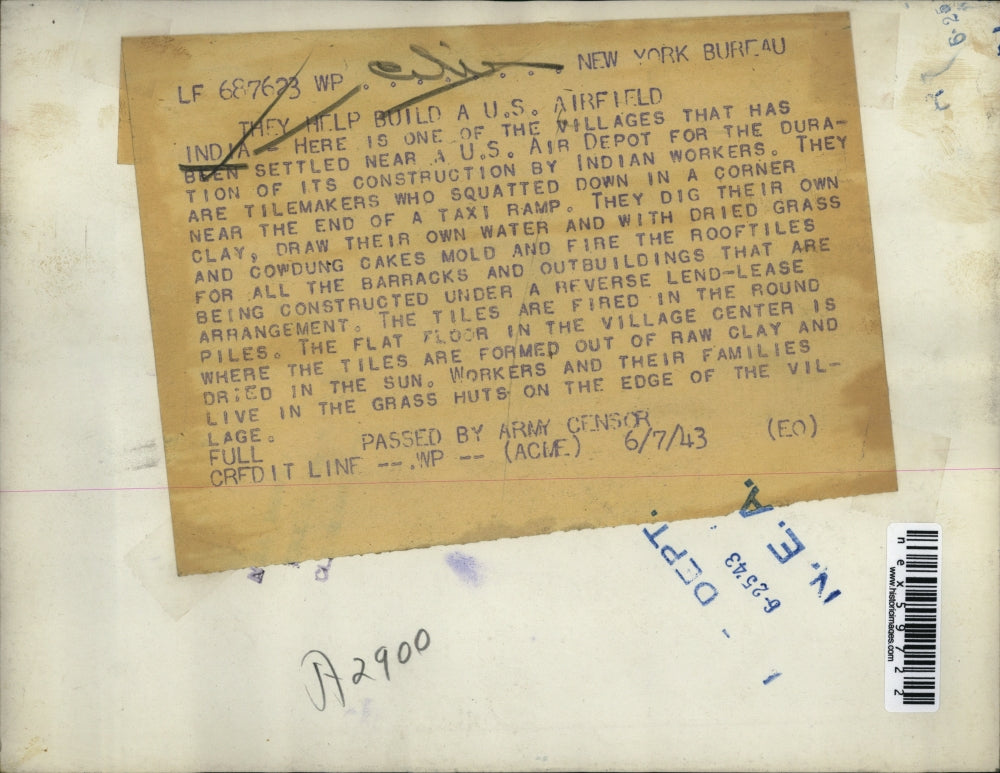 LF 687623 WP . . . . . . . NEW YORK BUREAU
THEY HELP BUILD A U.S. AIRFIELD
INDIA - HERE IS ONE OF THE VILLAGES THAT HAS
BEEN SETTLED NEAR A U.S. AIR DEPOT FOR THE DURA-
TION OF ITS CONSTRUCTION BY INDIAN WORKERS. THEY
ARE TILEMAKERS WHO SQUATTED DOWN IN A CORNER
NEAR THE END OF A TAXI RAMP. THEY DIG THEIR OWN
CLAY, DRAW THEIR OWN WATER AND WITH DRIED GRASS
AND COWDUNG CAKES MOLD AND FIRE THE ROOFTILES
FOR ALL THE BARRACKS AND OUTBUILDINGS THAT ARE
BEING CONSTRUCTED UNDER A REVERSE LEND-LEASE
ARRANGEMENT. THE TILES ARE FIRED IN THE ROUND
PILES. THE FLAT FLOOR IN THE VILLAGE CENTER IS
WHERE THE TILES ARE FORMED OUT OF RAW CLAY AND
DRIED IN THE SUN. WORKERS AND THEIR FAMILIES
LIVE IN THE GRASS HUTS ON THE EDGE OF THE VIL-
LAGE.
FULL PASSED BY ARMY CENSOR
CREDIT LINE --.WP -- (ACME) 6/7/43 (EO)
DEPT.
6-25'43
N. E. A.
A2900
nex59722
www.historicimages.com